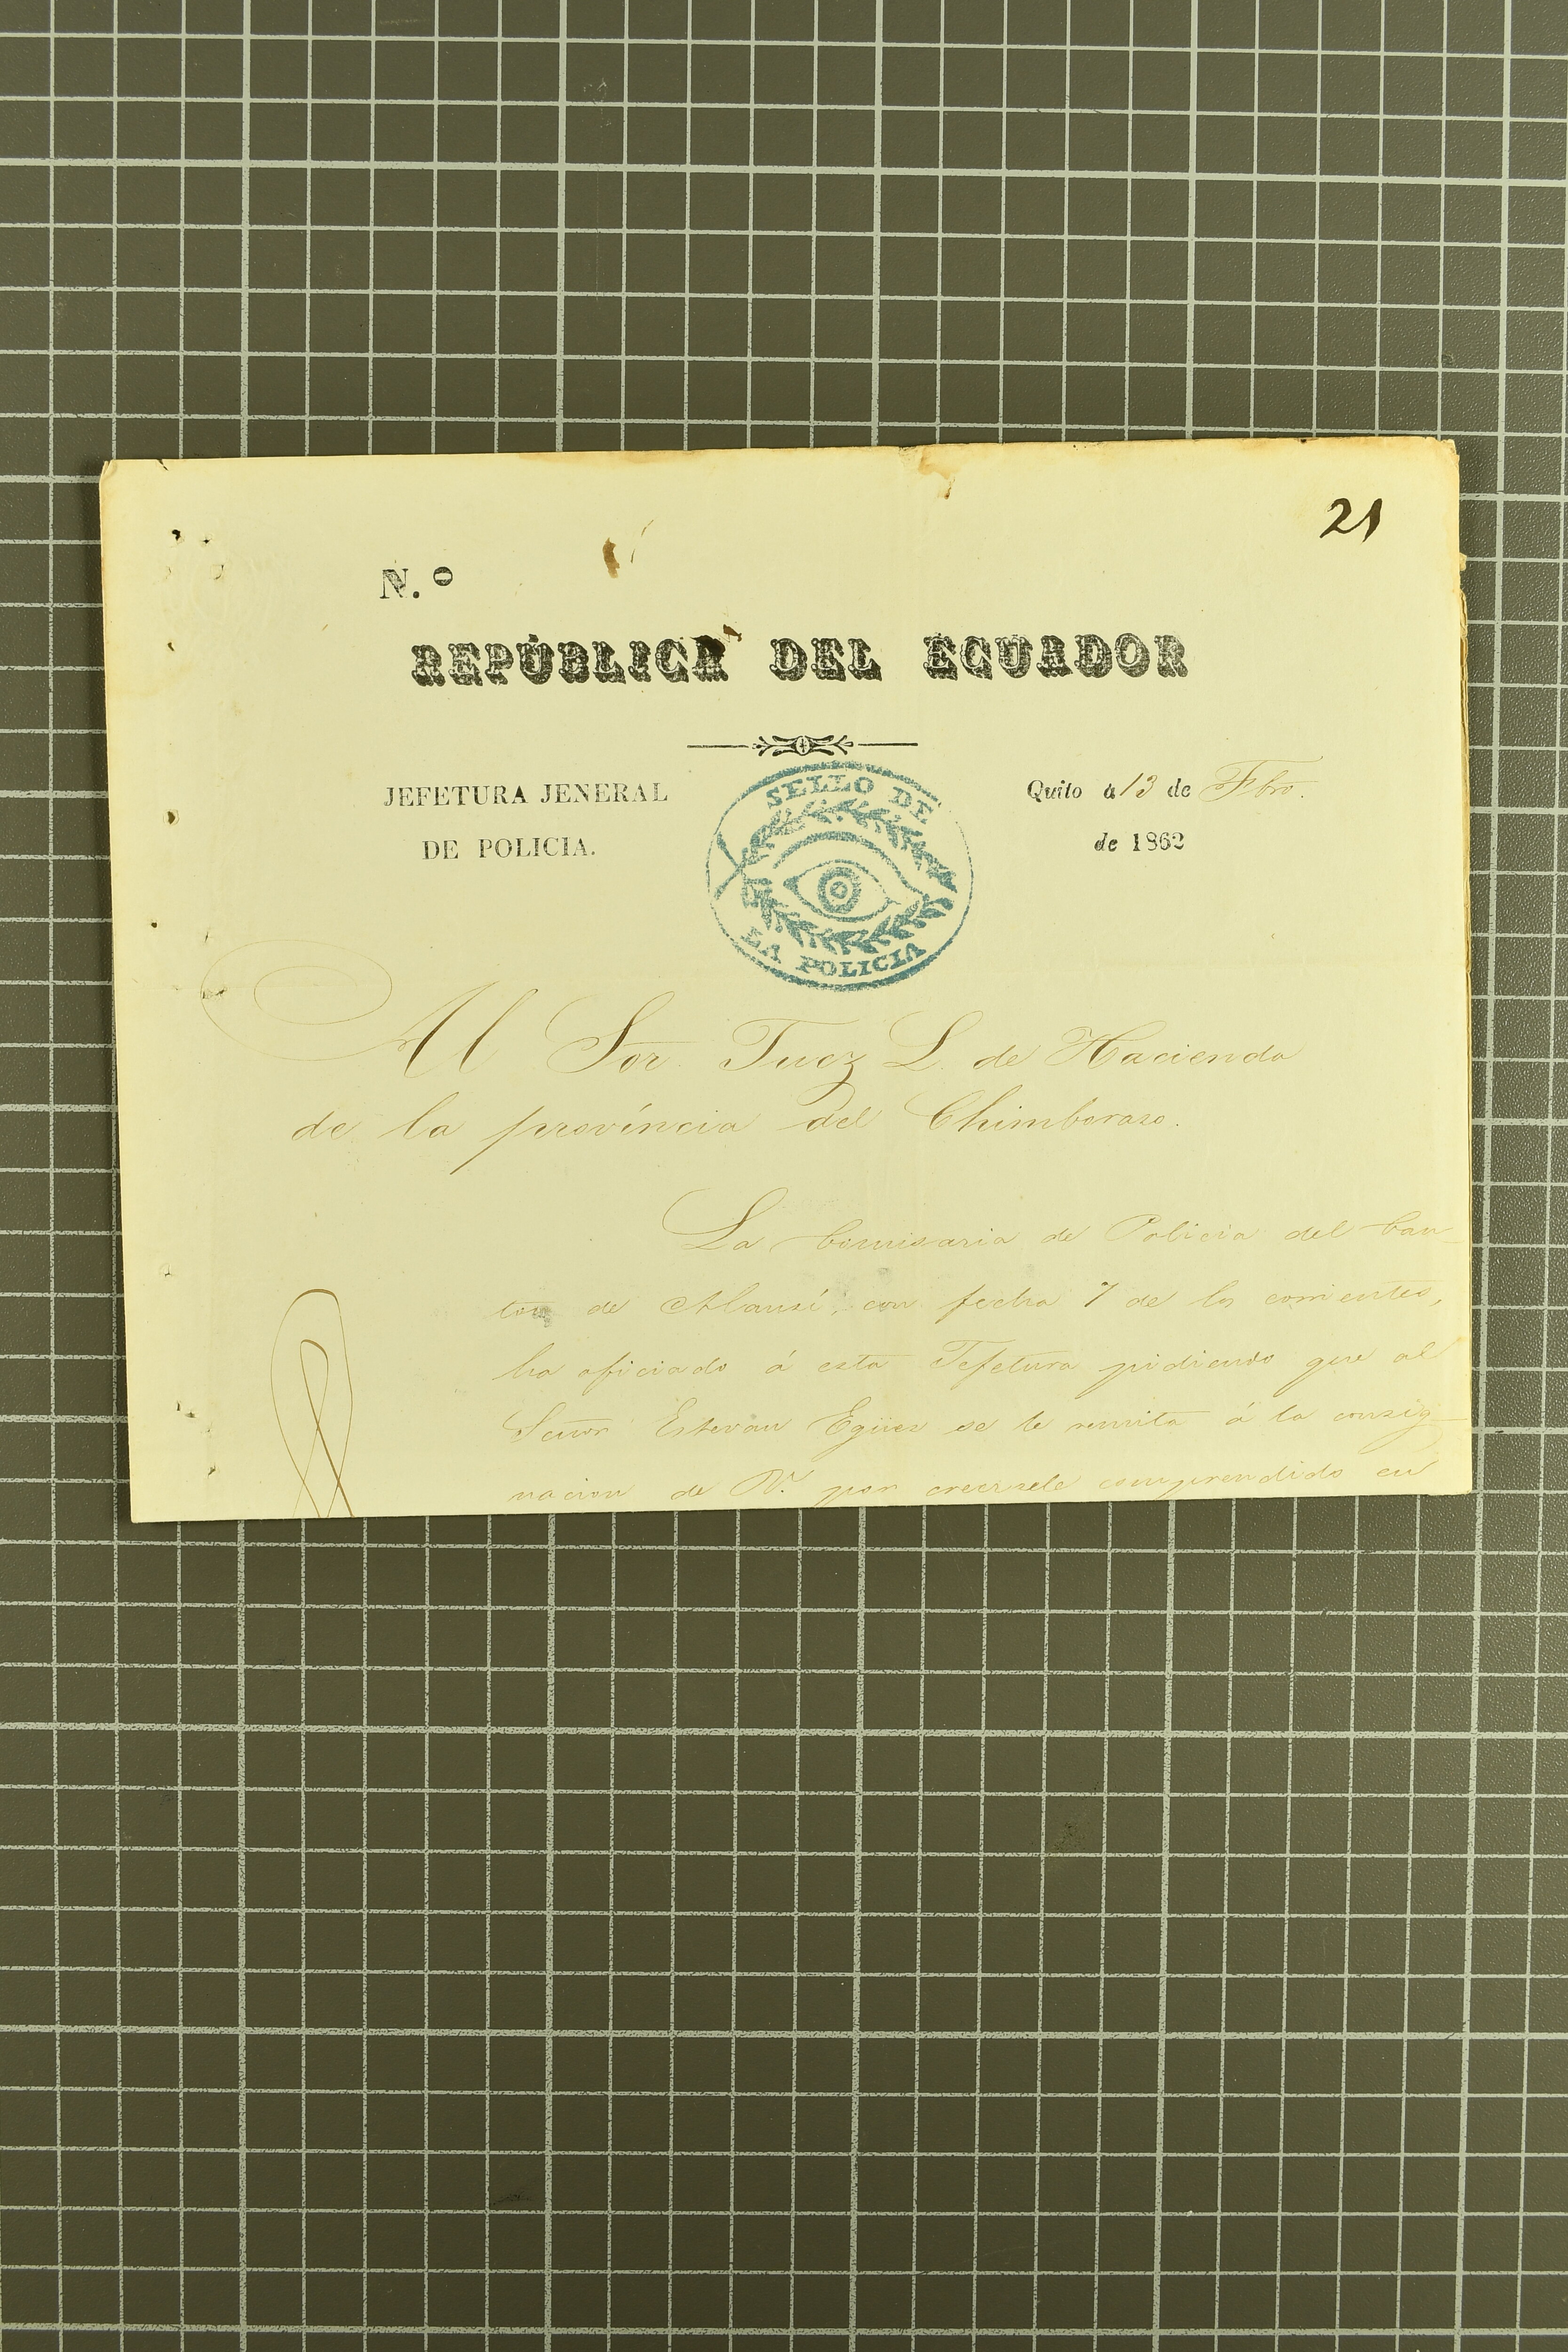 21
N.º
REPÚBLICA DEL ECUADOR
JEFETURA JENERAL
DE POLICIA.
SELLO DE
LA POLICIA
Quito a 13 de Fbro.
de 1862
Al Sor. Juez L. de Hacienda
de la província del Chimboraso.
La Comisaria de Policia del Can-
ton de Alausí, con fecha 7 de los corrientes,
ha oficiado á esta Jefetura pidiendo que al
Señor Estevan Egüez se le remita á la consig-
nacion de V. por creersele comprendido en